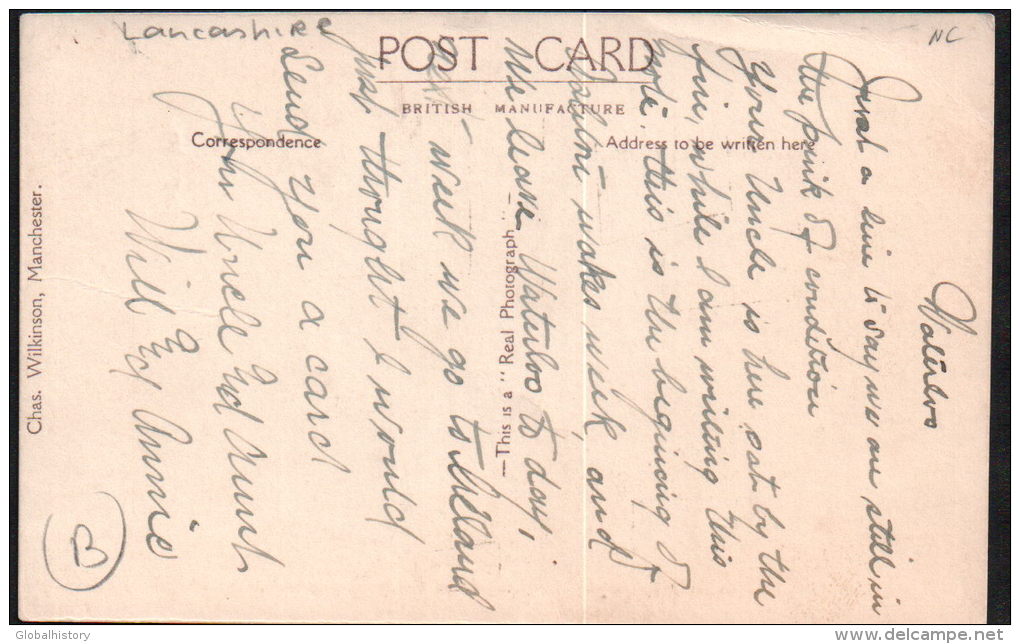 Lancashire
NC
POST CARD
BRITISH MANUFACTURE
Correspondence
Address to be written here
Chas. Wilkinson, Manchester.
—This is a "Real Photograph"—
Waterloo
Just a line to say we are still in
the pink of condition
Your Uncle is here sat by the
fire, while I am writing this
note this is the begining of
wakes week, and
we leave Waterloo to day,
next week we go to
just thought I would
Send you a card
Uncle and Aunt
Will & Annie
B
Globalhistory
www.delcampe.net